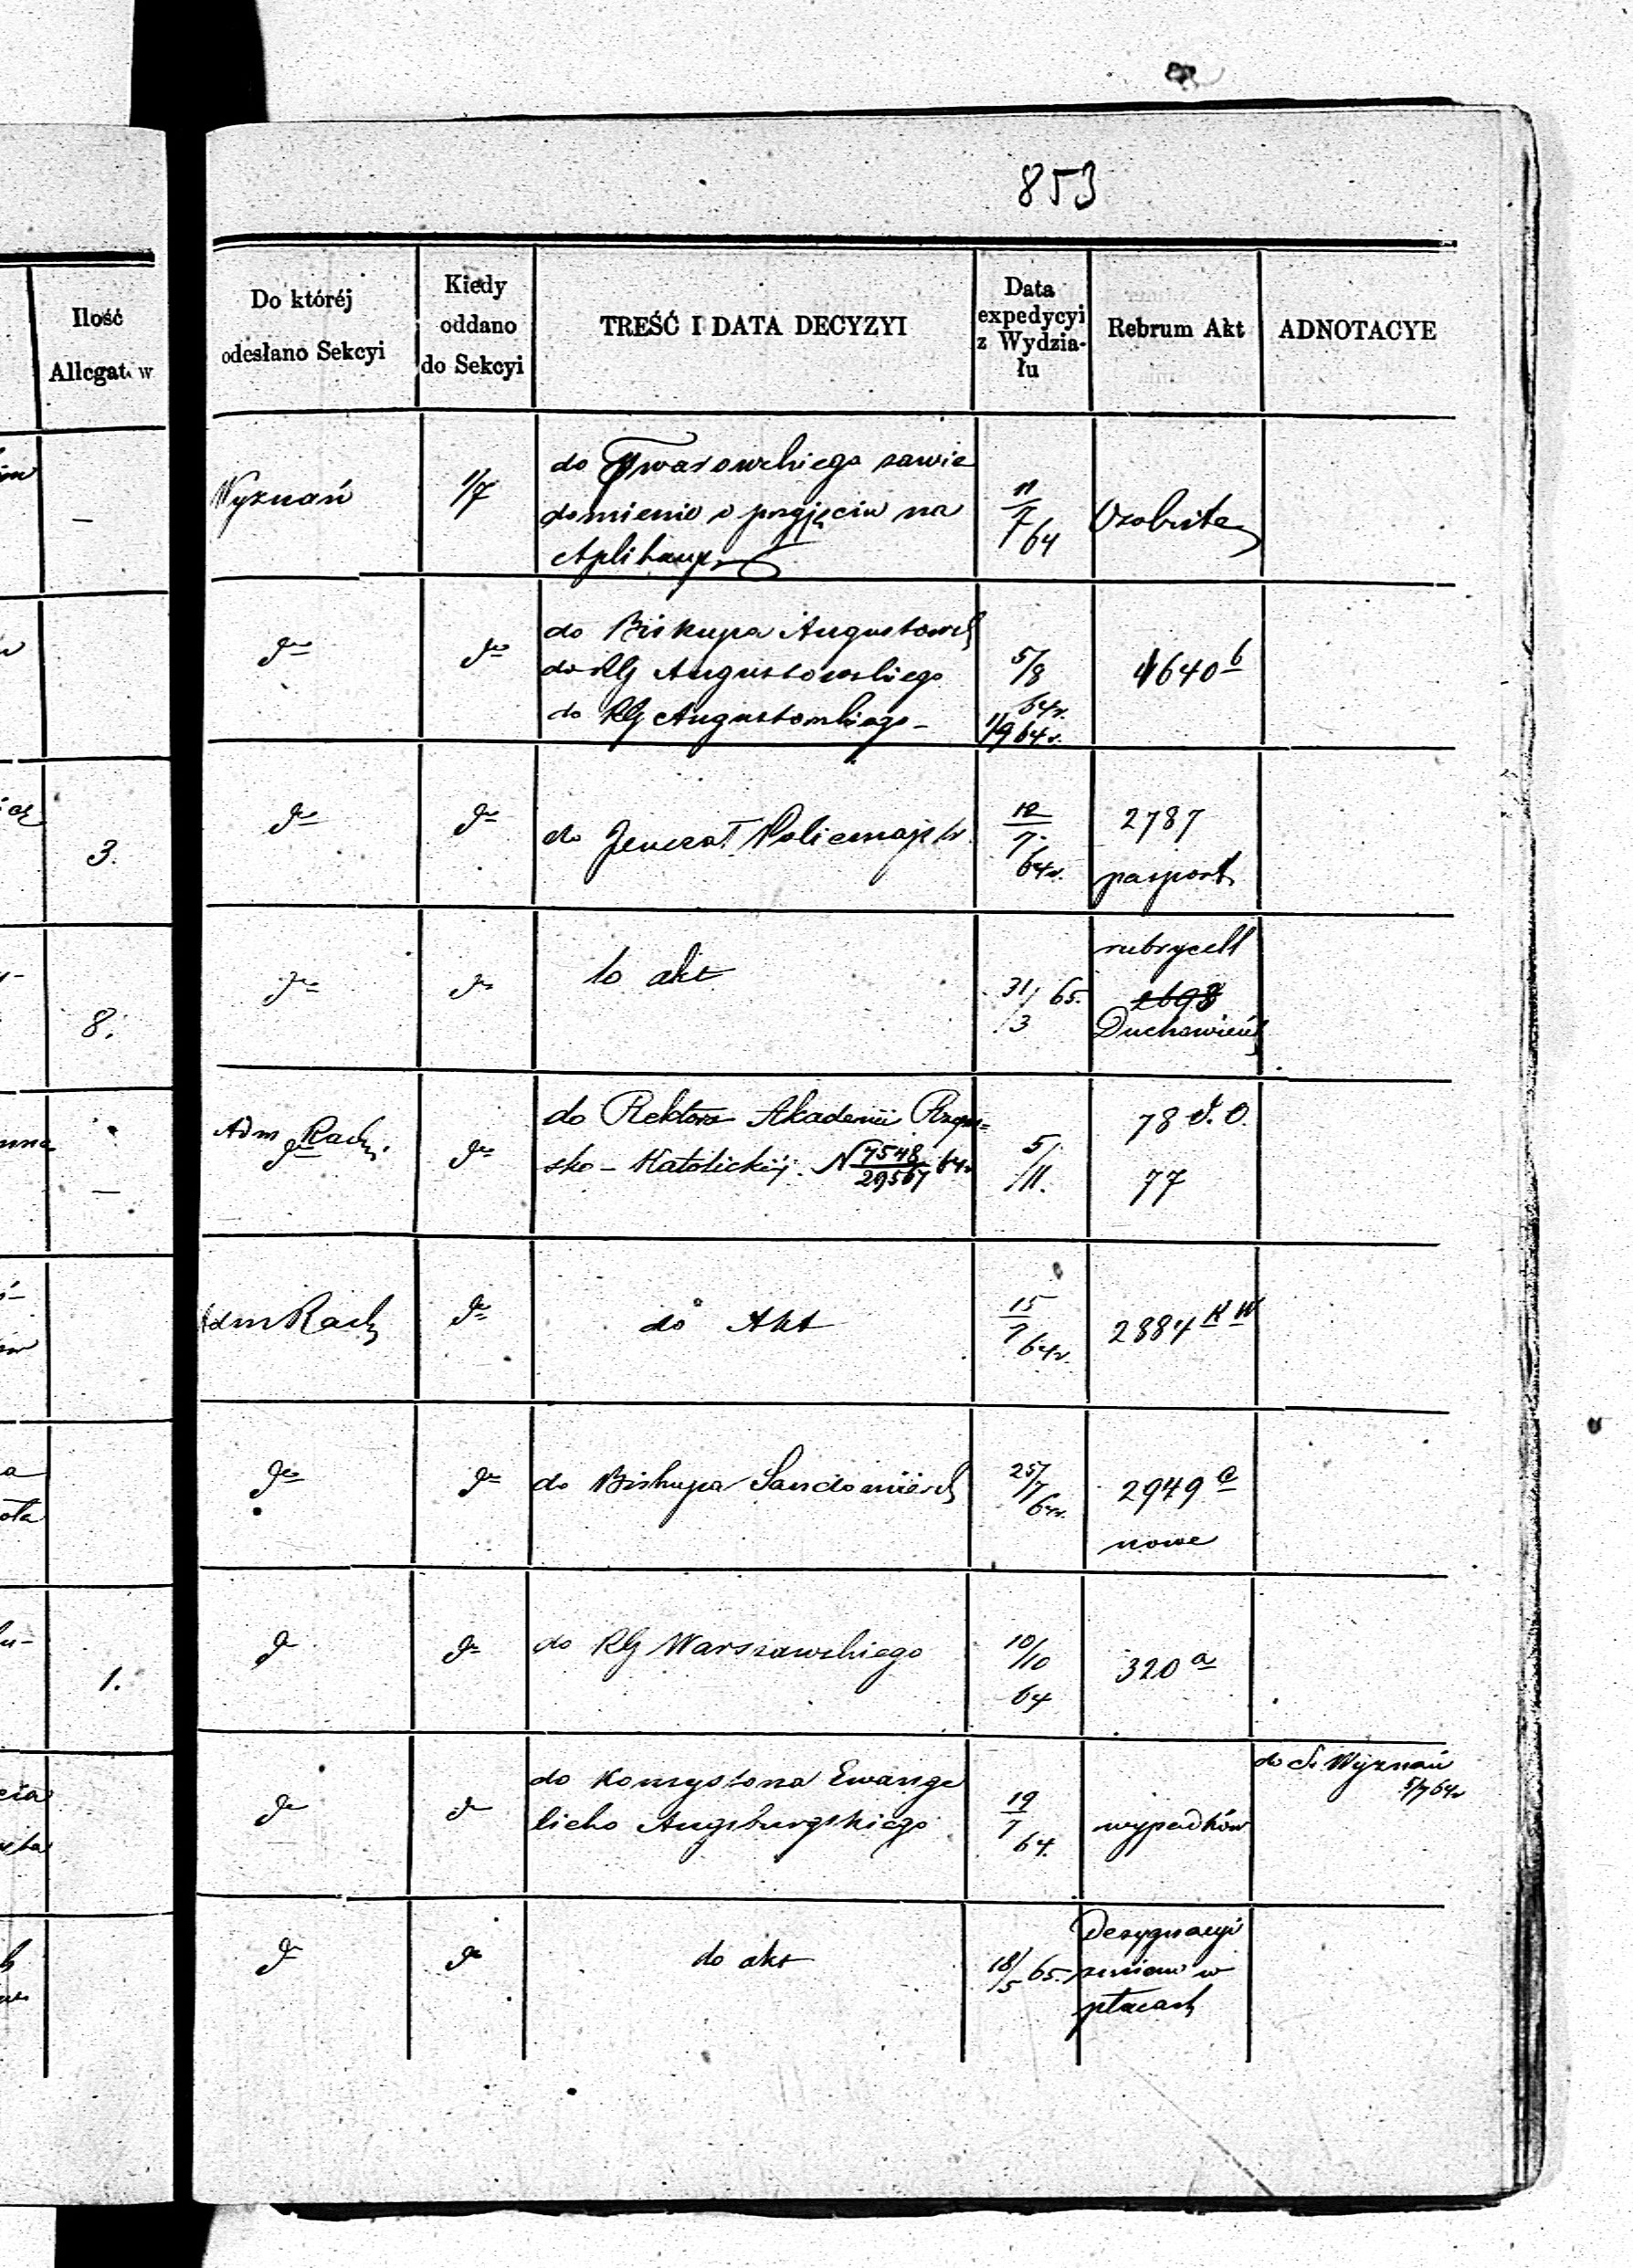 853
Ilość
Allegatów
Do któréj
odesłano Sekcyi
Kiedy
oddano
do Sekcyi
TREŚĆ I DATA DECYZYI
Data
expedycyi
z Wydzia-
łu
Rebrum Akt
ADNOTACYE
—
Wyznań
1/7
do zawia
domienie o przyjęciu na
11/7 64
Osobiste
do
do
do Biskupa Augustows
do RG Augustowskiego
do RG Augustowskiego -
5/8
64r.
1/9 64r.
1640 b
3.
do
do
do Jenerał Policmajstr
12/7.
64r.
2787
paszport
8.
do
do
do akt
31/3 65.
rubrycell
2698
Duchowień
—
Adm Rach.
do
do
do Rektora Akademii Rzym=
sko - Katolickiéj. N 7548/29567 64r
5/11.
78 d. O.
77
Adm Rach
do
do Akt
15/7 64r.
2884 K W
do
do
do Biskupa Sandomiersk
25/7 64r.
2949 c
nowe
1.
do
do
do RG Warszawskiego
10/10
64
320 a
do
do
do Konsystorza Ewange
licko Augsburgskiego
19/7 64.
wypadków
do S. Wyznań
5/7 64r
do
do
do akt
18/5 65.
Desygnacyi
zmian w
płacach